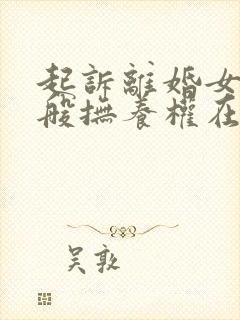 起訴離婚女
般撫養權在
吴敦